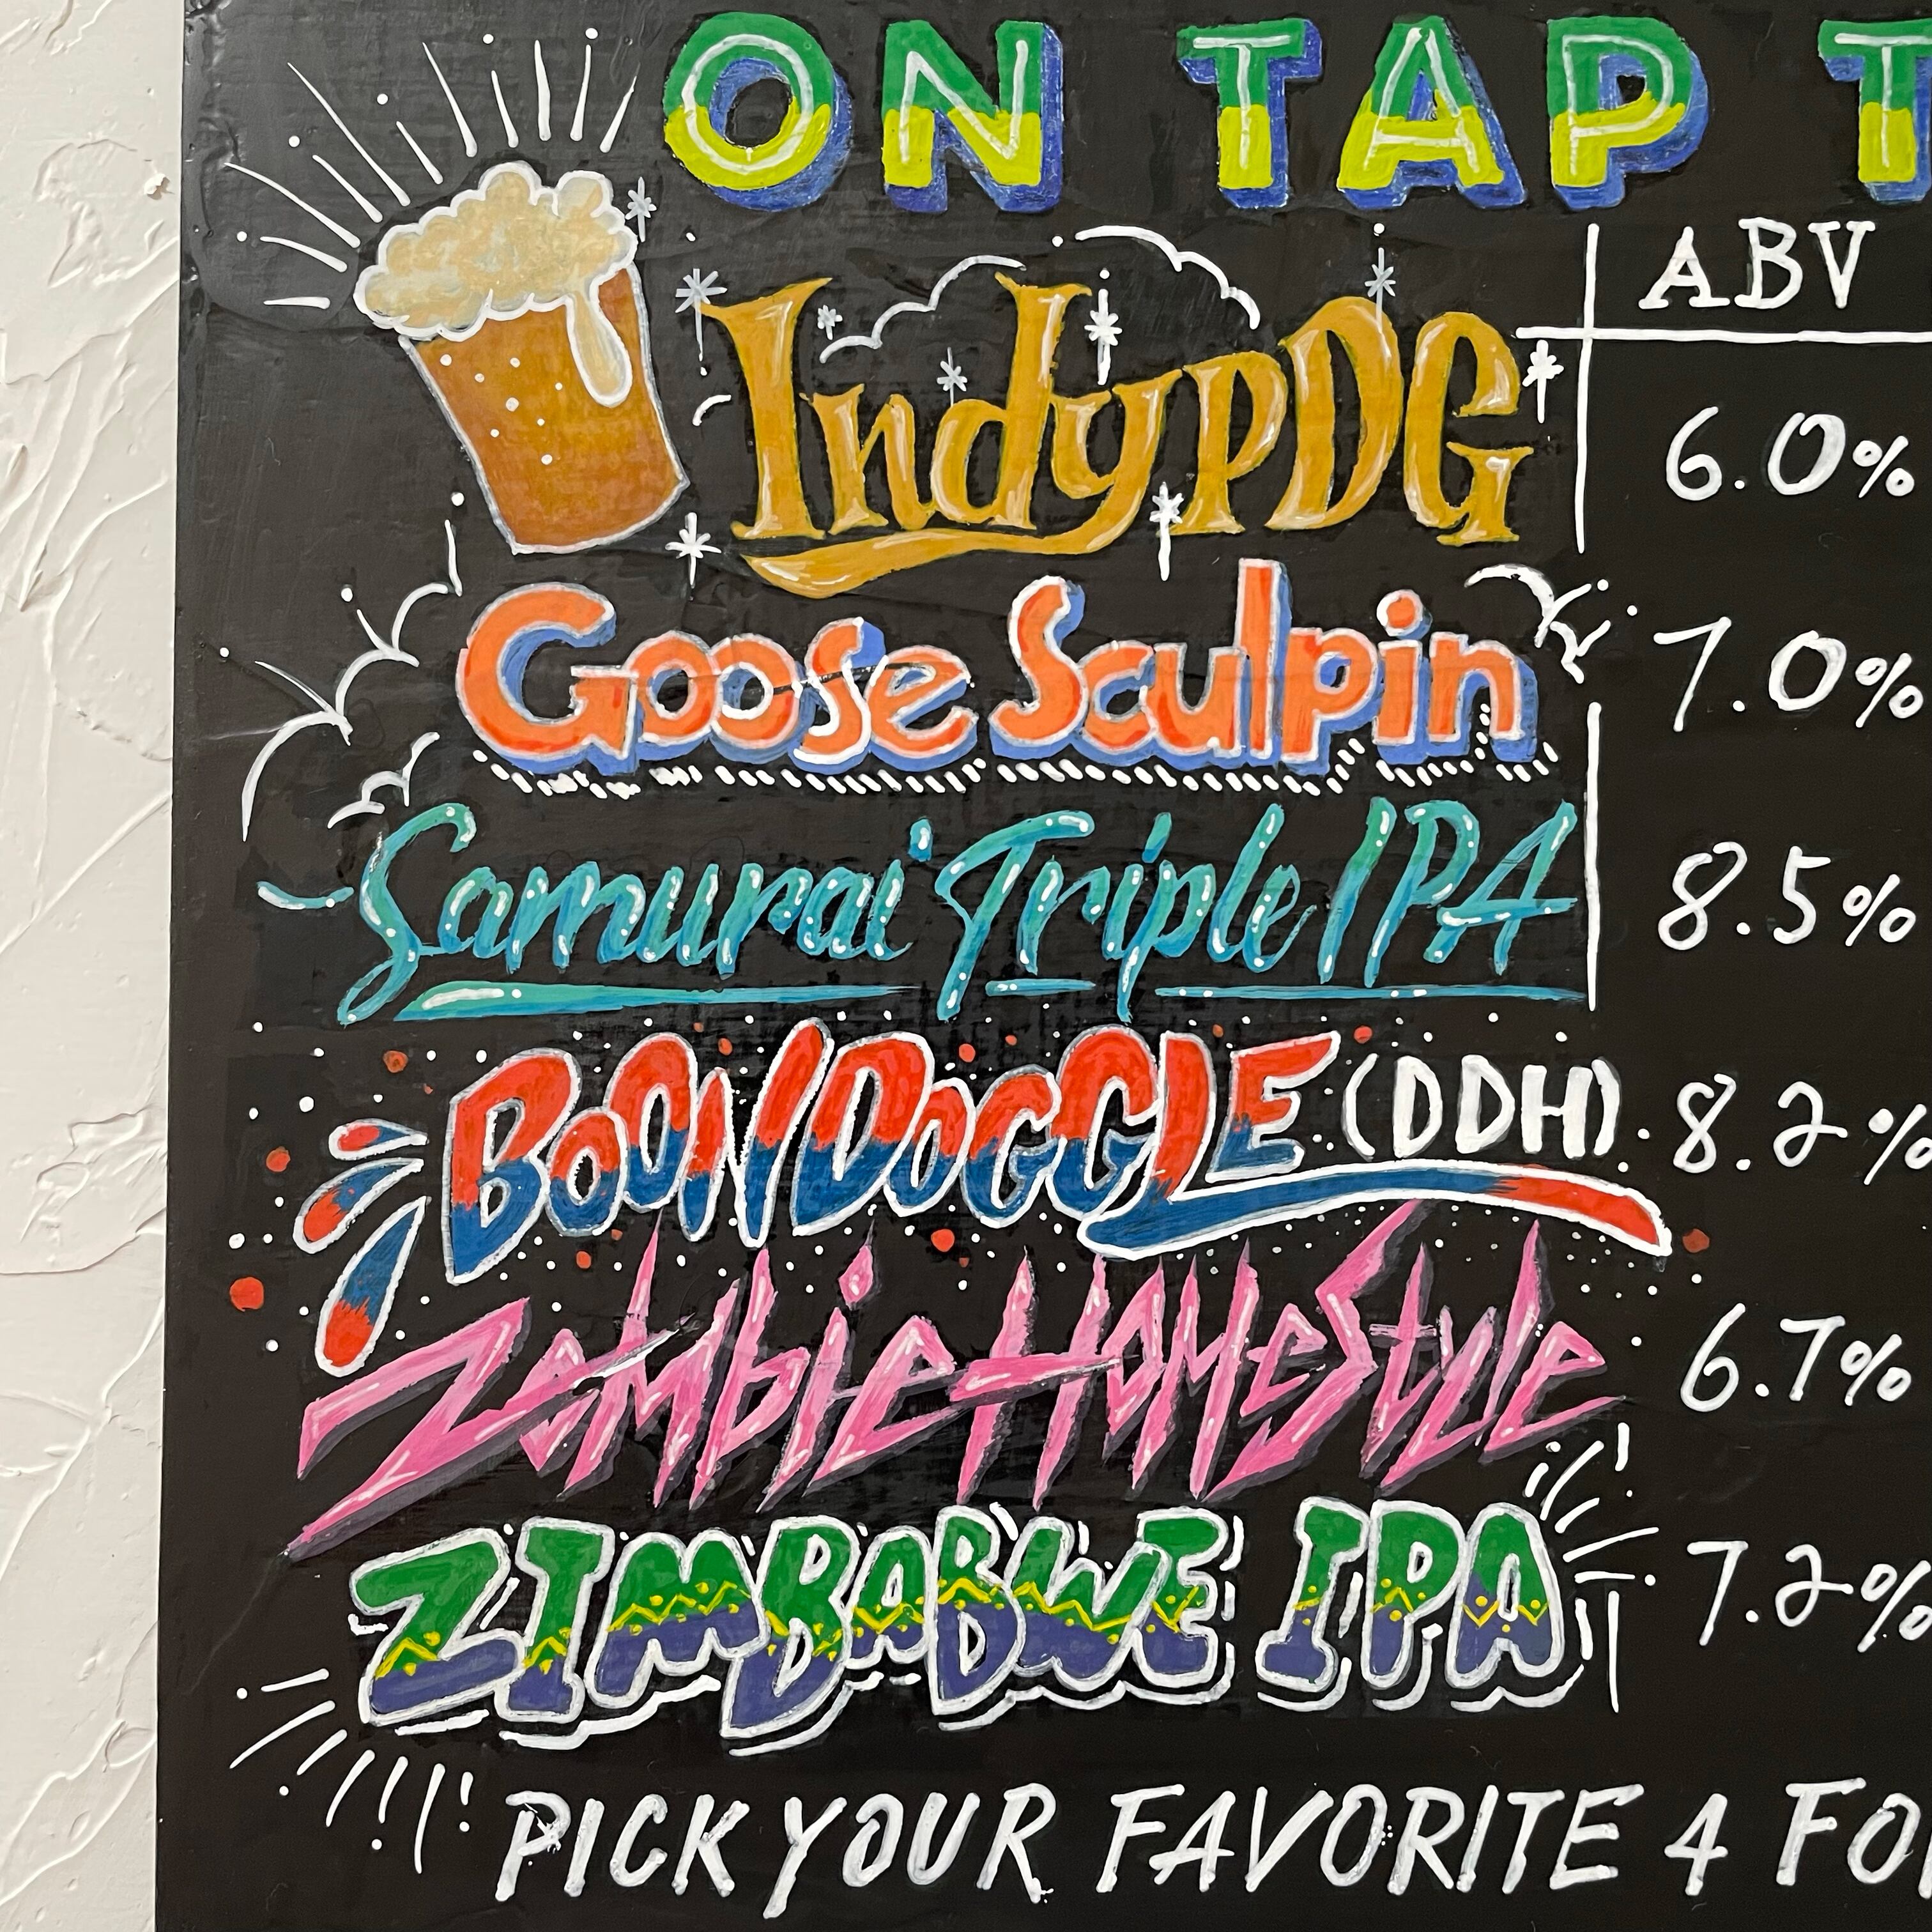 ON TAP T
ABV
IndyPDG 6.0%
Goose Sculpin 7.0%
Samurai Triple IPA 8.5%
BOONDOGGLE (DDH) 8.2%
Zombie HOMeStyle 6.7%
ZIMBABWE IPA 7.2%
PICK YOUR FAVORITE 4 FO